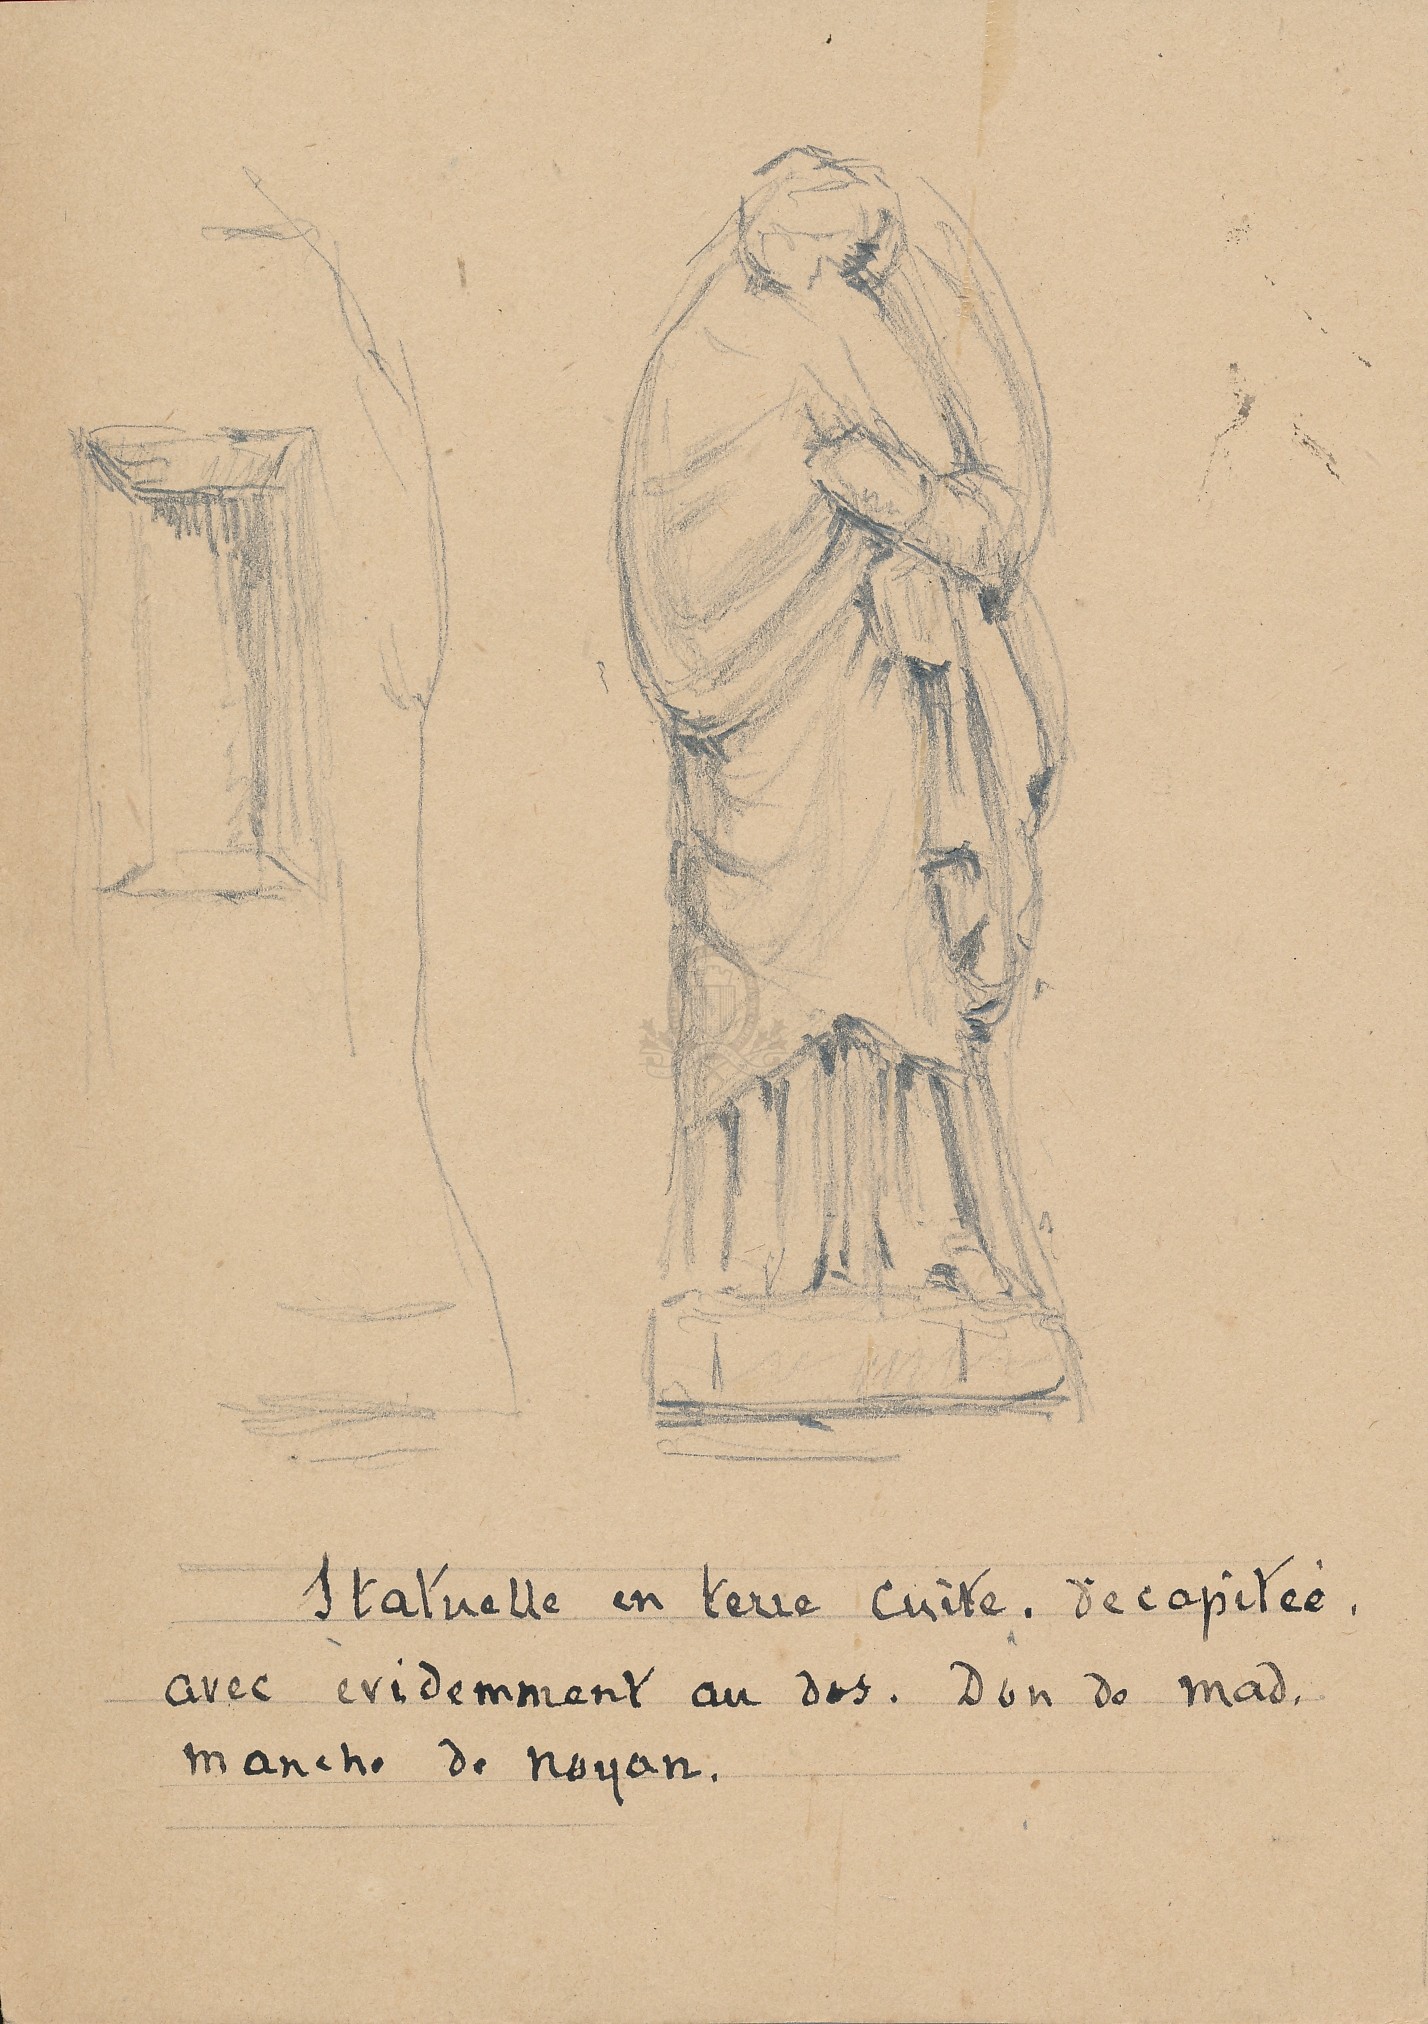 Statuelle en terre cuite. decapiteé.
avec evidemment au dos. Don de mad.
manche de noyan.